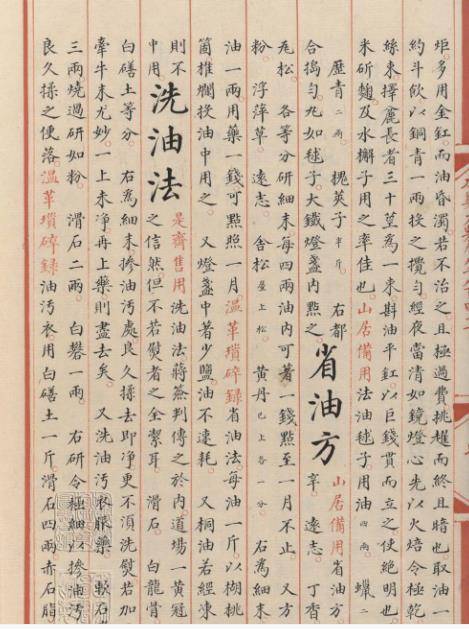 炬多用金釭而油昏濁若不治之且極過費挑趯而終且暗也取油一
約斗飲以銅青一兩投之攪勻經夜當清如鏡燈心先以火焙令極乾
絲束擇麄長者三十莖為一束斟油平釭以巨錢貫而立之使絕明也
米斫麹及水檞子用之率佳也山居備用法油毬子用油四兩 蠟二
歷青二兩 槐莢子半斤 右都
合搗勻丸如毬子大鐵燈盞內點之
省油方
山居備用省油方
辛 遠志 丁香
瓦松 各等分研細末每四兩油內可著一錢點至一月不止 又方
粉 浮萍草 遠志 舍松屋上松 黃丹已上各一分 右為細末
油一兩用藥一錢可點照一月溫革瑣碎錄省油法每油一斤以胡桃
箇椎爛投油中用之 又燈盞中著少鹽油不速耗 又桐油若經凍
則不
中用
洗油法
是齋售用洗油法蔣簽判傳之於內道場一黃冠
之信然但不若熨者之全潔耳 滑石 白龍骨
白礠土等分 右為細末摻油污處良久揉去即淨更不須洗熨若加
牽牛末尤妙一上未淨再上藥則盡去矣 又洗油污衣服藥 軟石
三兩燒過研如粉 滑石二兩 白礬一兩 右研令極細以摻油污
良久揉之便落溫革瑣碎錄油污衣用白礠土一斤滑石四兩赤石脂